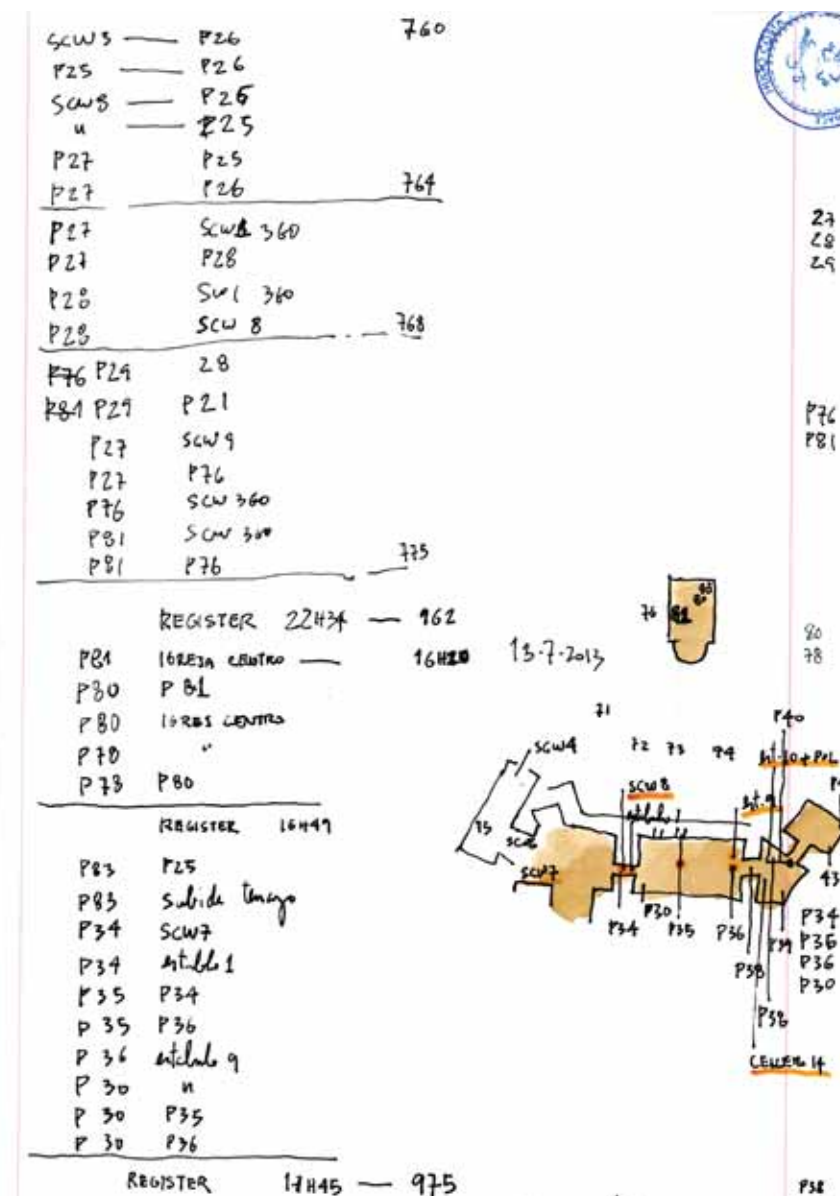 SCW3 — P26 760
P25 — P26
SCW8 — P26
" — P25
P27 P25
P27 P26 764
P27 SCW1 360
P27 P28
P28 360
P28 SCW 8 768
P76 P29 28
P81 P29 P21
P27 SCW9
P27 P76
P76 SCW 360
P81 SCW 360
P81 P76 775
REGISTER 22H34 — 962
P81 IGREJA CENTRO — 16H20 13-7-2013
P80 P81
P80 IGREJ CENTRO
P78 "
P78 P80
REGISTER 16H49
P83 P25
P83 subida
P34 SCW7
P34 1
P35 P34
P35 P36
P36 9
P30 "
P30 P35
P30 P36
REGISTER 17H45 — 975
27
28
29
P76
P81
80
78
76 81
71
SCW4 72 73 74 P40
SCW8
75
SCW7
P34 P30 P35 P36 P39 43
P34
P36
P36
P30
P38
P38
14
P38